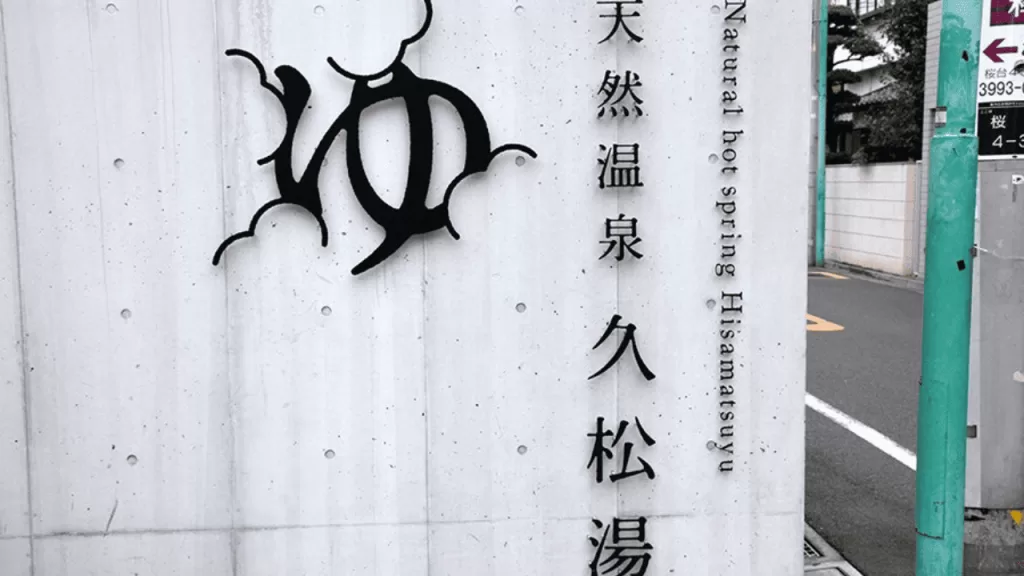 ゆ
天然温泉 久松湯
Natural hot spring Hisamatsuyu
桜台4
3993-
桜
4-3